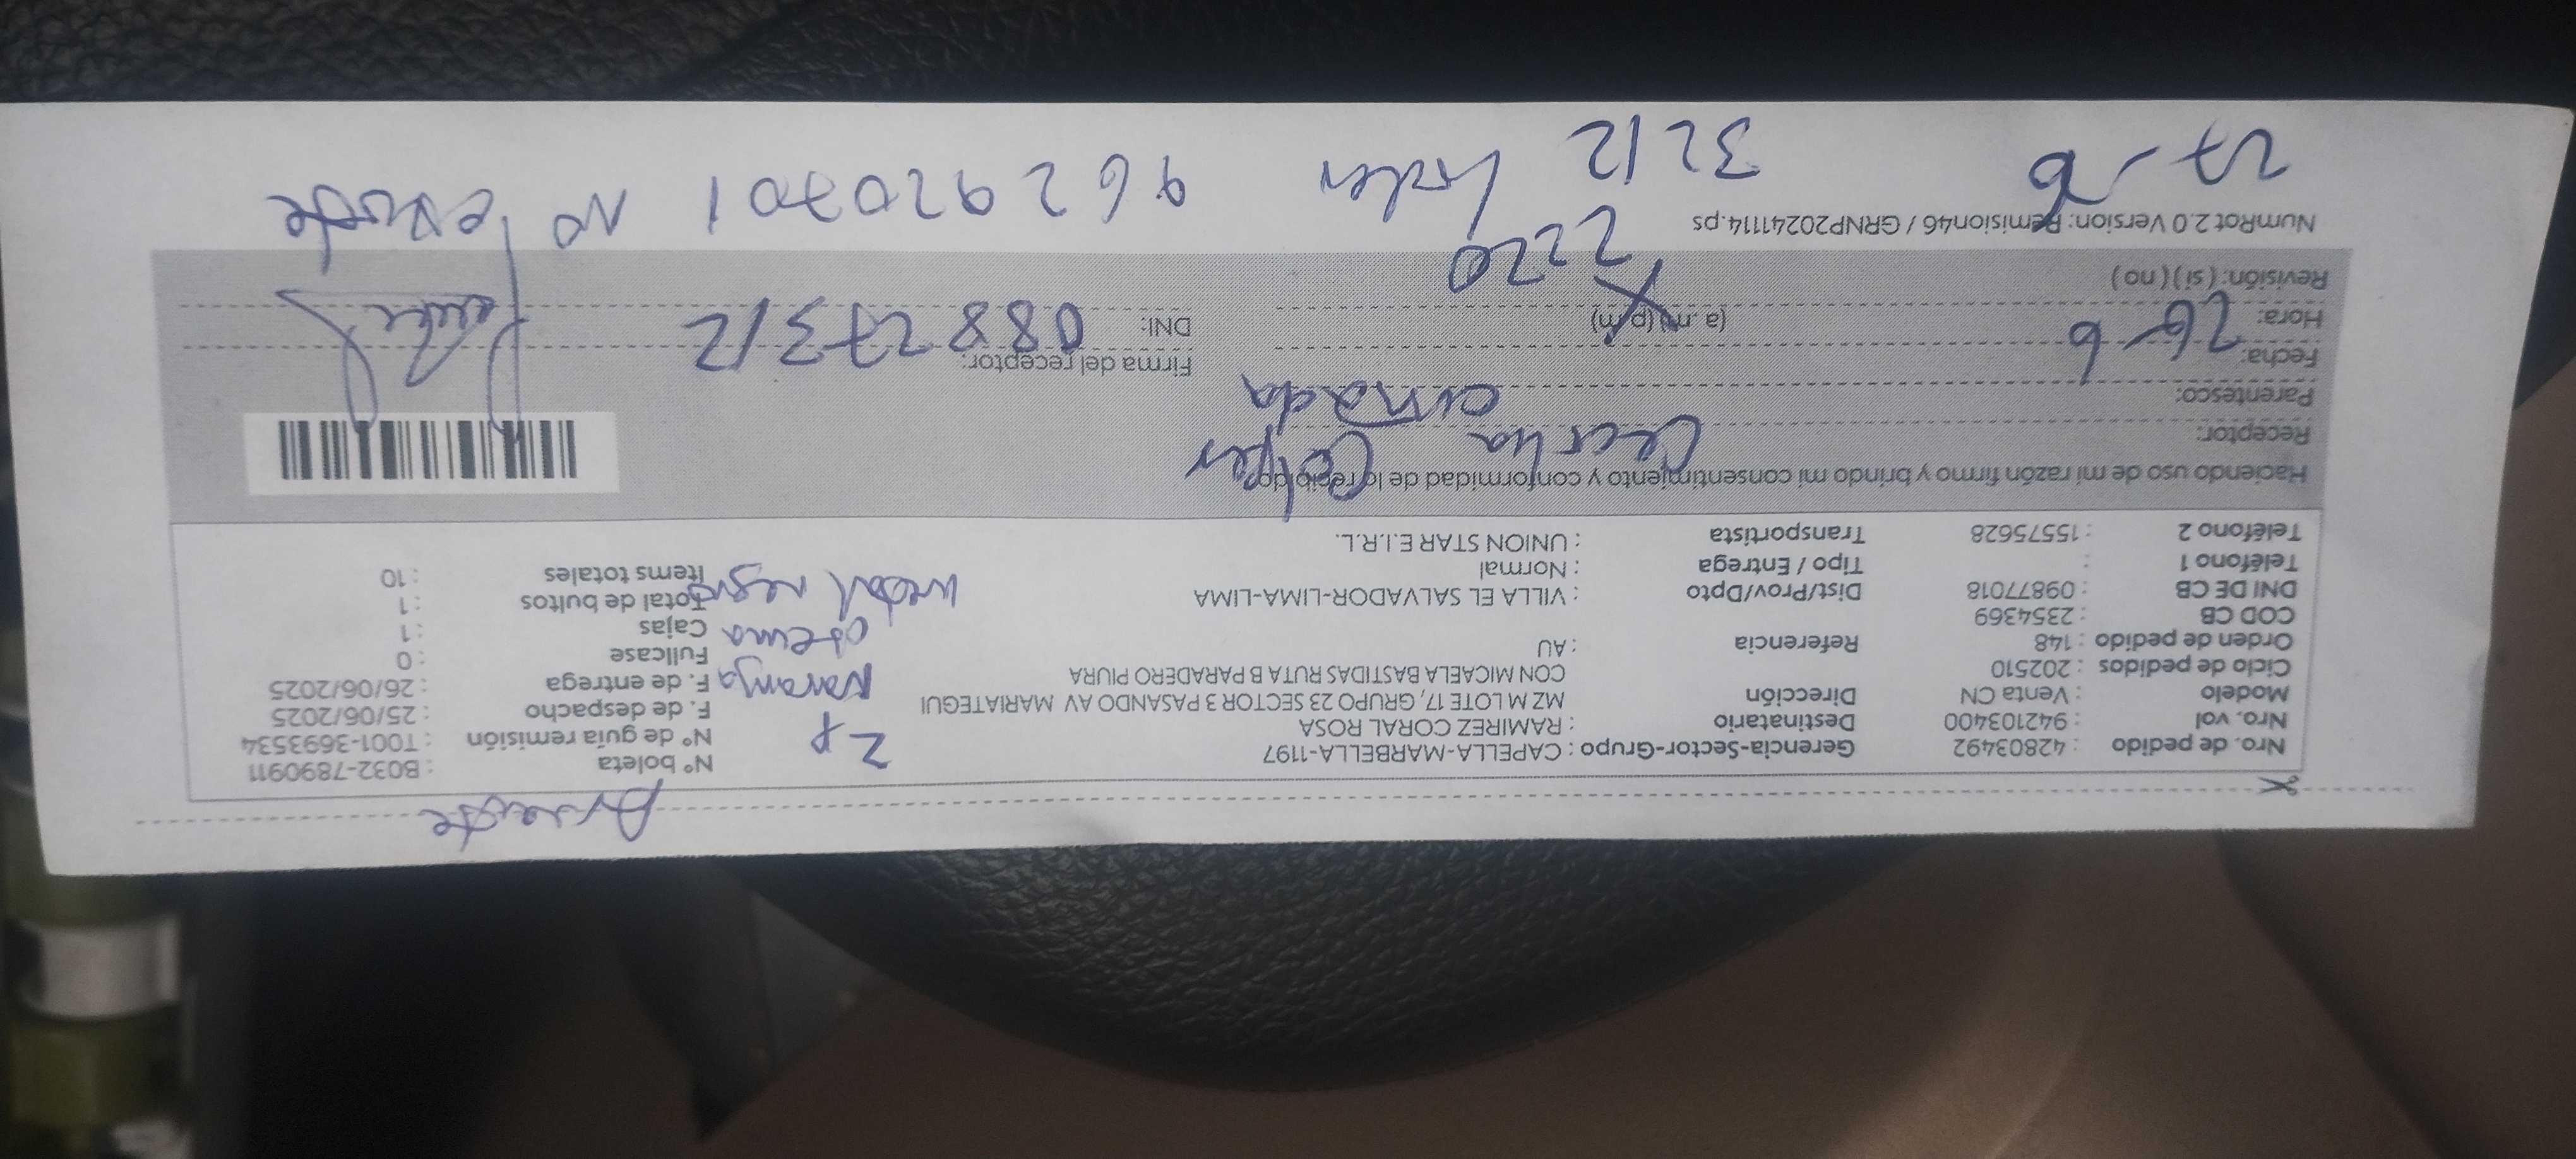 Ausente
Nro. de pedido : 42803492 Gerencia-Sector-Grupo : CAPELLA-MARBELLA-1197 N° boleta : B032-7890911
Nro. vol : 942103400 Destinatario : RAMIREZ CORAL ROSA 2p N° de guía remisión : T001-3693534
Modelo : Venta CN Dirección MZ M LOTE 17, GRUPO 23 SECTOR 3 PASANDO AV MARIATEGUI F. de despacho : 25/06/2025
Ciclo de pedidos : 202510 CON MICAELA BASTIDAS RUTA B PARADERO PIURA Naranja F. de entrega : 26/06/2025
Orden de pedido : 148 Referencia : AU Fullcase : 0
COD CB : 2354369 Cajas : 1
DNI DE CB : 09877018 Dist/Prov/Dpto : VILLA EL SALVADOR-LIMA-LIMA Total de bultos : 1
Teléfono 1 : Tipo / Entrega : Normal metal negro Items totales : 10
Teléfono 2 : 15575628 Transportista : UNION STAR E.I.R.L.
Haciendo uso de mi razón firmo y brindo mi consentimiento y conformidad de lo recibido
Receptor: Cecilia
Parentesco: cuñada
Fecha: 26-6 Firma del receptor:
Hora: (a.m) (p.m) DNI: 08827312
Revisión: (si) (no) 2220
NumRot 2.0 Version: Remision46 / GRNP20241114.ps
27-6 3212 962920701 no